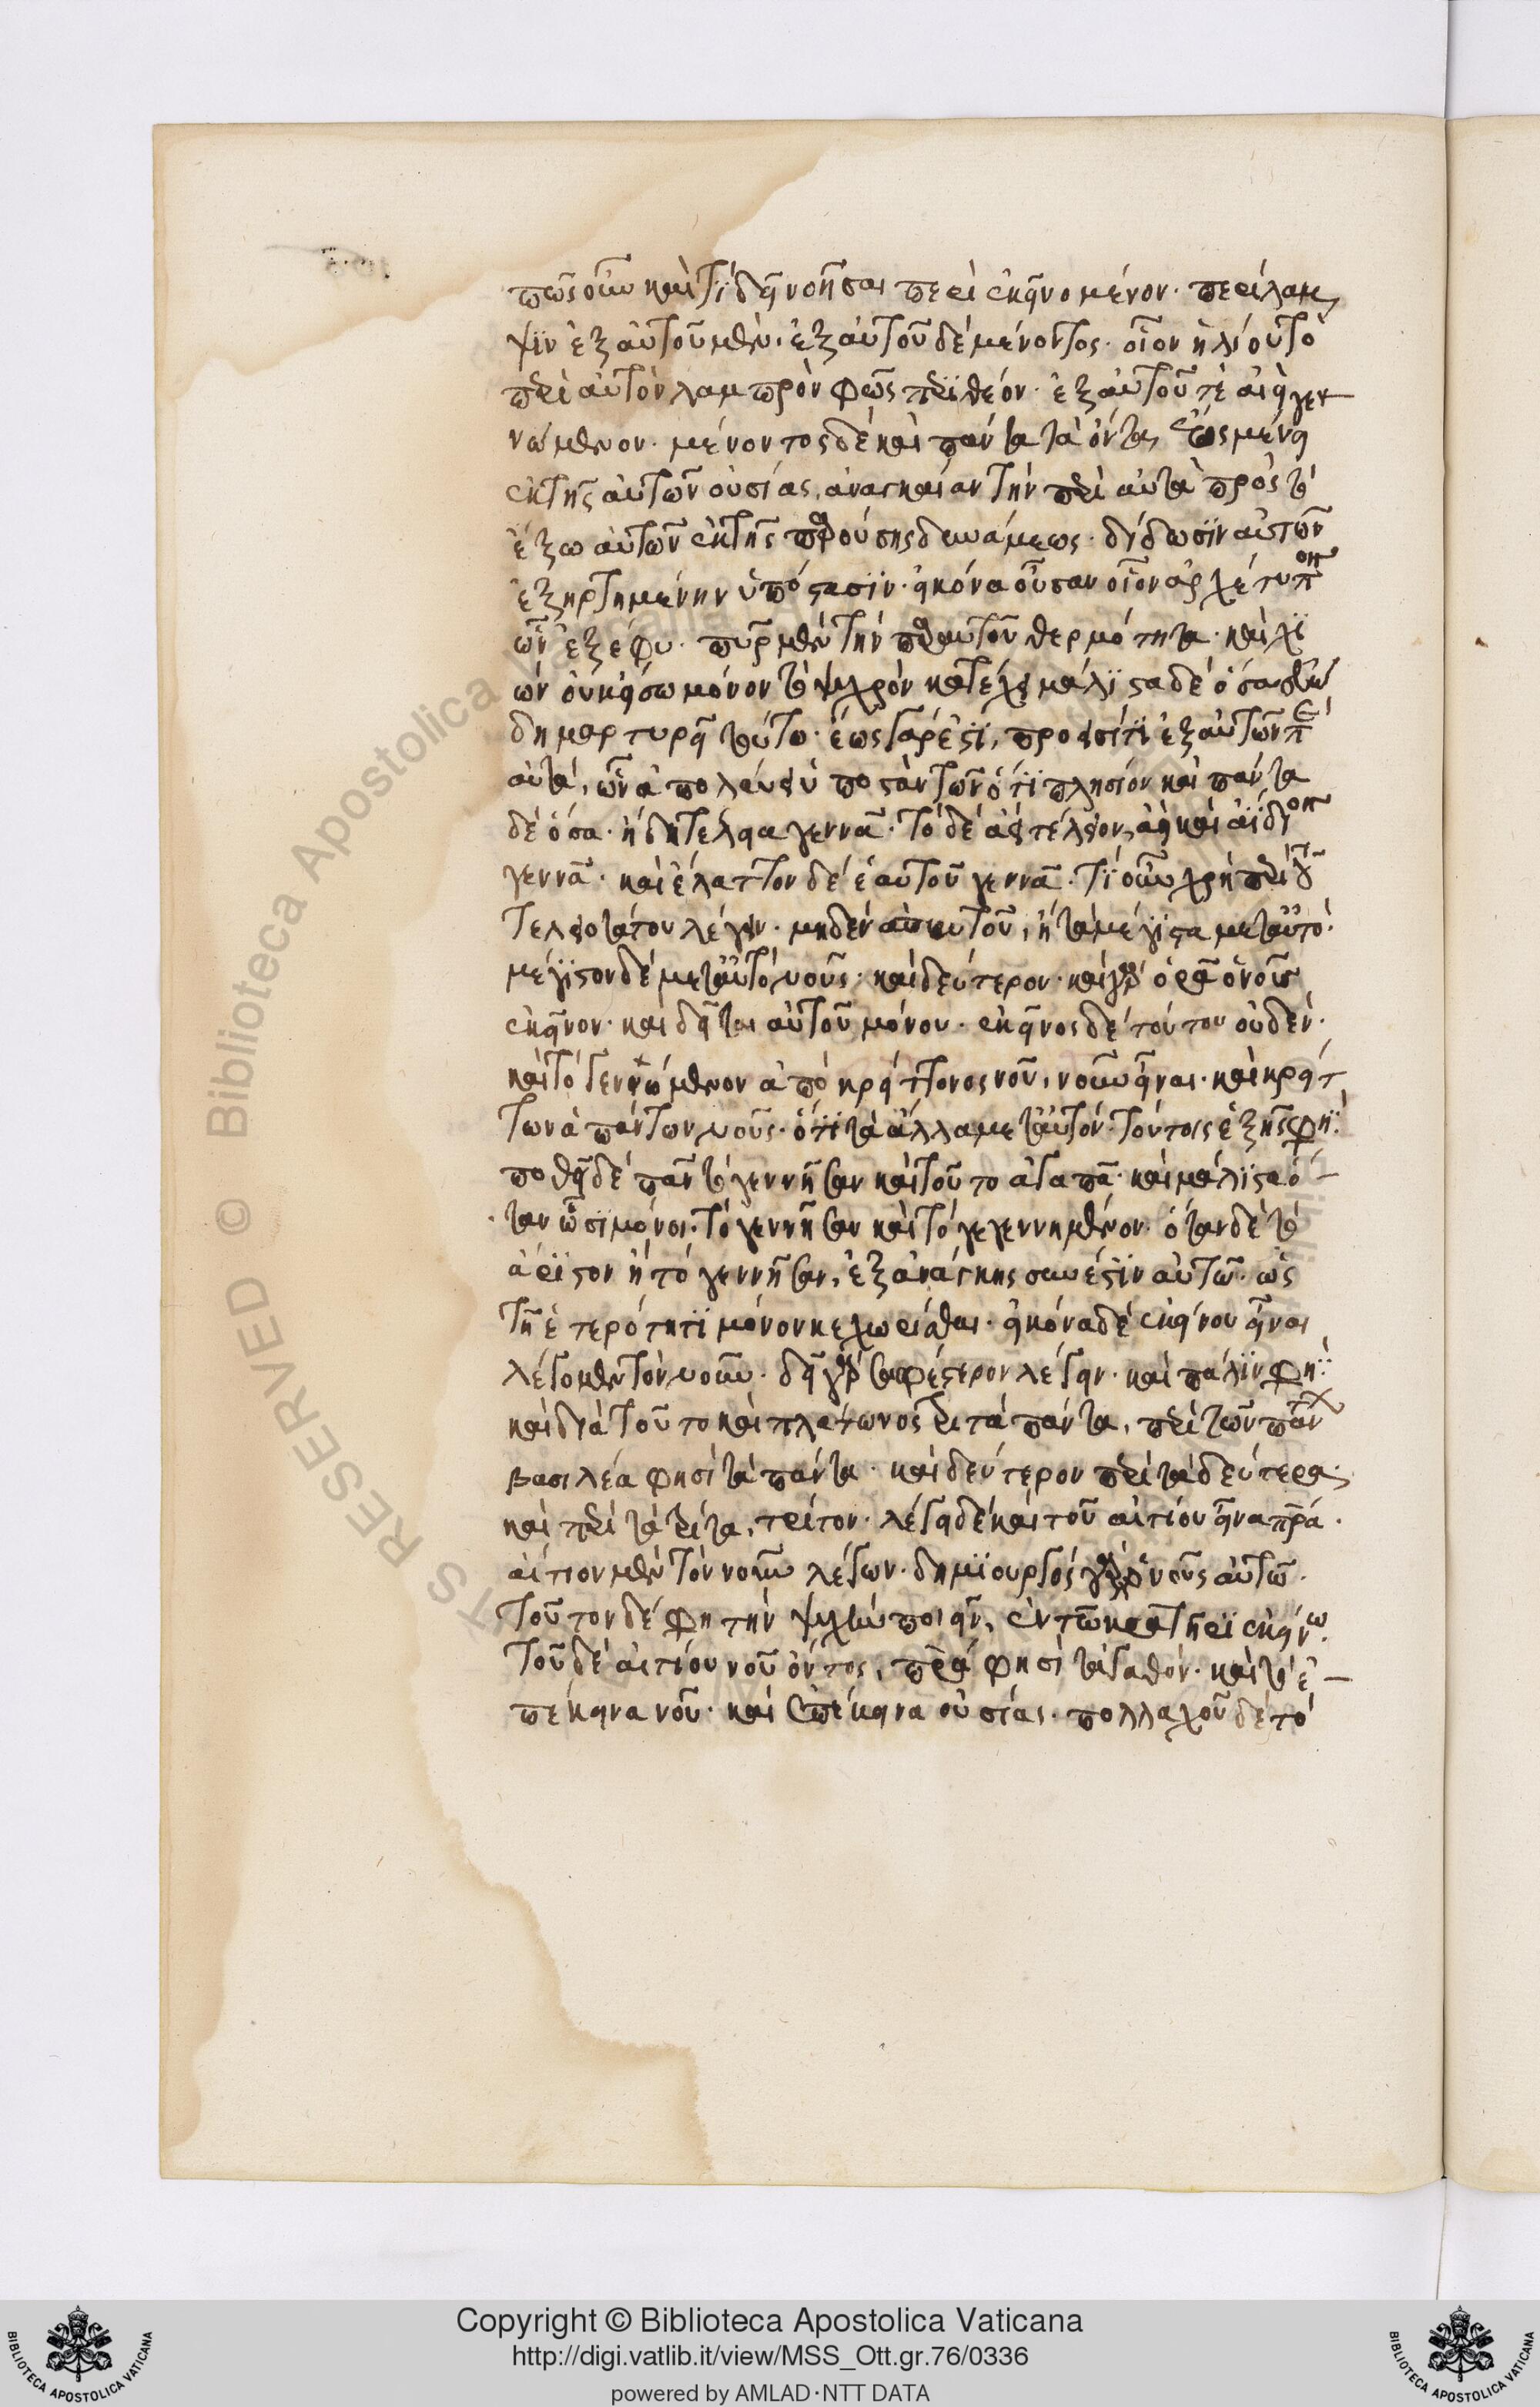 πῶς οὖν καὶ τί δεῖ νοῆσαι περὶ ἐκεῖνο μένον· περίλαμ
ψιν ἐξ αὐτοῦ μὲν· ἐξ αὐτοῦ δὲ μένοντος· οἷον ἡλίου τὸ
περὶ αὐτὸν λαμπρὸν φῶς περιθέον· ἐξ αὐτοῦ τὲ αἰεὶ γεν
νώμενον· μένοντος δὲ καὶ πάντα τὰ ὄντα, ἕως μένει
ἐκ τῆς αὐτῶν οὐσίας, ἀναγκαίαν τὴν περὶ αὐτὰ πρὸς τὸ
ἔξω αὐτῶν ἐκ τῆς παρούσης δυνάμεως· δίδωσιν αὐτῶν
ἐξηρτημένην ὑπόστασιν· εἰκόνα οὖσαν οἷον ἀρχέτυπον
ὧν ἐξέφυ· πῦρ μὲν τὴν παραυτοῦ θερμότητα· καὶ χι
ὼν οὐκ εἴσω μόνον τὸ ψυχρὸν κατέχει μάλιστα δὲ ὅσα εὐώ
δη μαρτυρεῖ τούτω· ἕως γάρ ἐστι, πρόεισί τι ἐξ αὐτῶν περὶ
αὐτὰ, ὧν ἀπολαύει ὑποστὰντων ὅτι πλησίον καὶ πάντα
δὲ ὅσα· ἤδη τέλεια γεννᾶ· τὸ δὲ ἀεὶ τέλειον, ἀεὶ καὶ ἀΐδιον
γεννᾶ· καὶ ἔλαττον δὲ ἑαυτοῦ γεννᾶ· τί οὖν χρὴ περὶ τοῦ
τελειοτάτου λέγειν· μηδὲν ἀπαυτοῦ, ἢ τὰ μέγιστα μεταὐτό·
μέγιστον δὲ μεταὐτὸ νοῦς· καὶ δεύτερον· καὶ γὰρ ὁρᾶ ὁ νοῦς
ἐκεῖνον· καὶ δεῖται αὐτοῦ μόνου· ἐκεῖνος δὲ τούτου οὐδέν·
καὶ τὸ γεννώμενον ἀπὸ κρείττονος νοῦ, νοῦν εἶναι· καὶ κρείτ
των ἁπάντων νοῦς· ὅτι τὰ ἄλλα μεταὐτόν· τούτοις ἑξῆς φησί·
ποθεῖ δὲ πᾶν τὸ γεννῆσαν καὶ τοῦτο ἀγαπᾶ· καὶ μάλιστα ὅ
ταν ὦσι μόνοι· τὸ γεννῆσαν καὶ τὸ γεγεννημένον· ὅταν δὲ τὸ
ἄριστον ἦ τὸ γεννῆσαν, ἐξ ἀνάγκης σύνέστιν αὐτῶ· ὡς
τῆ ἑτερότητι μόνον κεχωρίσθαι· εἰκόνα δὲ ἐκείνου εἶναι
λέγομεν τὸν νοῦν· δεῖ γὰρ σαφέστερον λέγειν· καὶ πάλιν φησί·
καὶ διὰ τοῦτο καὶ πλάτωνος τριτὰ πάντα, περὶ τῶν πάντων
βασιλέα φησὶ τὰ πάντα· καὶ δεύτερον περὶ τὰ δεύτερα·
καὶ περὶ τὰ τρίτα, τρίτον· λέγει δὲ καὶ τοῦ αἰτίου εἶναι πατέρα·
αἴτιον μὲν τὸν νοῦν λέγων· δημιουργὸς γὰρ ὁ νοῦς αὐτῶ·
τοῦτον δέ φησι τὴν ψυχὴν ποιεῖν, ἐν τῶ κρατῆρι ἐκείνω·
τοῦ δὲ αἰτίου νοῦ ὄντος, πατέρα φησὶ τἀγαθόν· καὶ τὸ ἐ
πέκεινα νοῦ· καὶ ἐπέκεινα οὐσίας· πολλαχοῦ δὲ τὸ
Copyright © Biblioteca Apostolica Vaticana
http://digi.vatlib.it/view/MSS_Ott.gr.76/0336
powered by AMLAD·NTT DATA